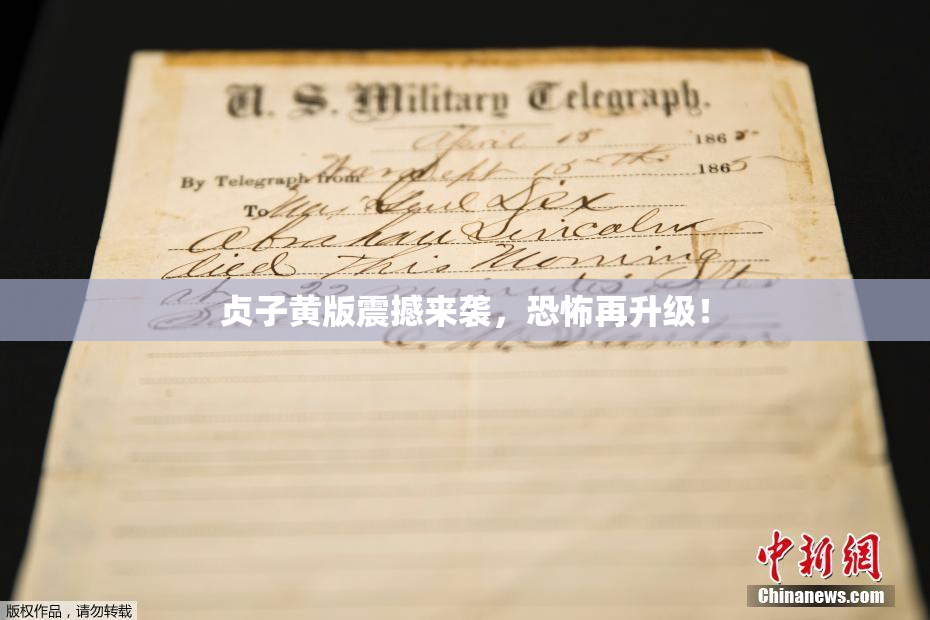 U. S. Military Telegraph.
April 15 1865
By Telegraph from War Dept 15th 1865
To Maj Genl Dix
Abraham Lincoln
died This Morning
at 22 minutes after
贞子黄版震撼来袭，恐怖再升级！
中新网
Chinanews.com
版权作品，请勿转载